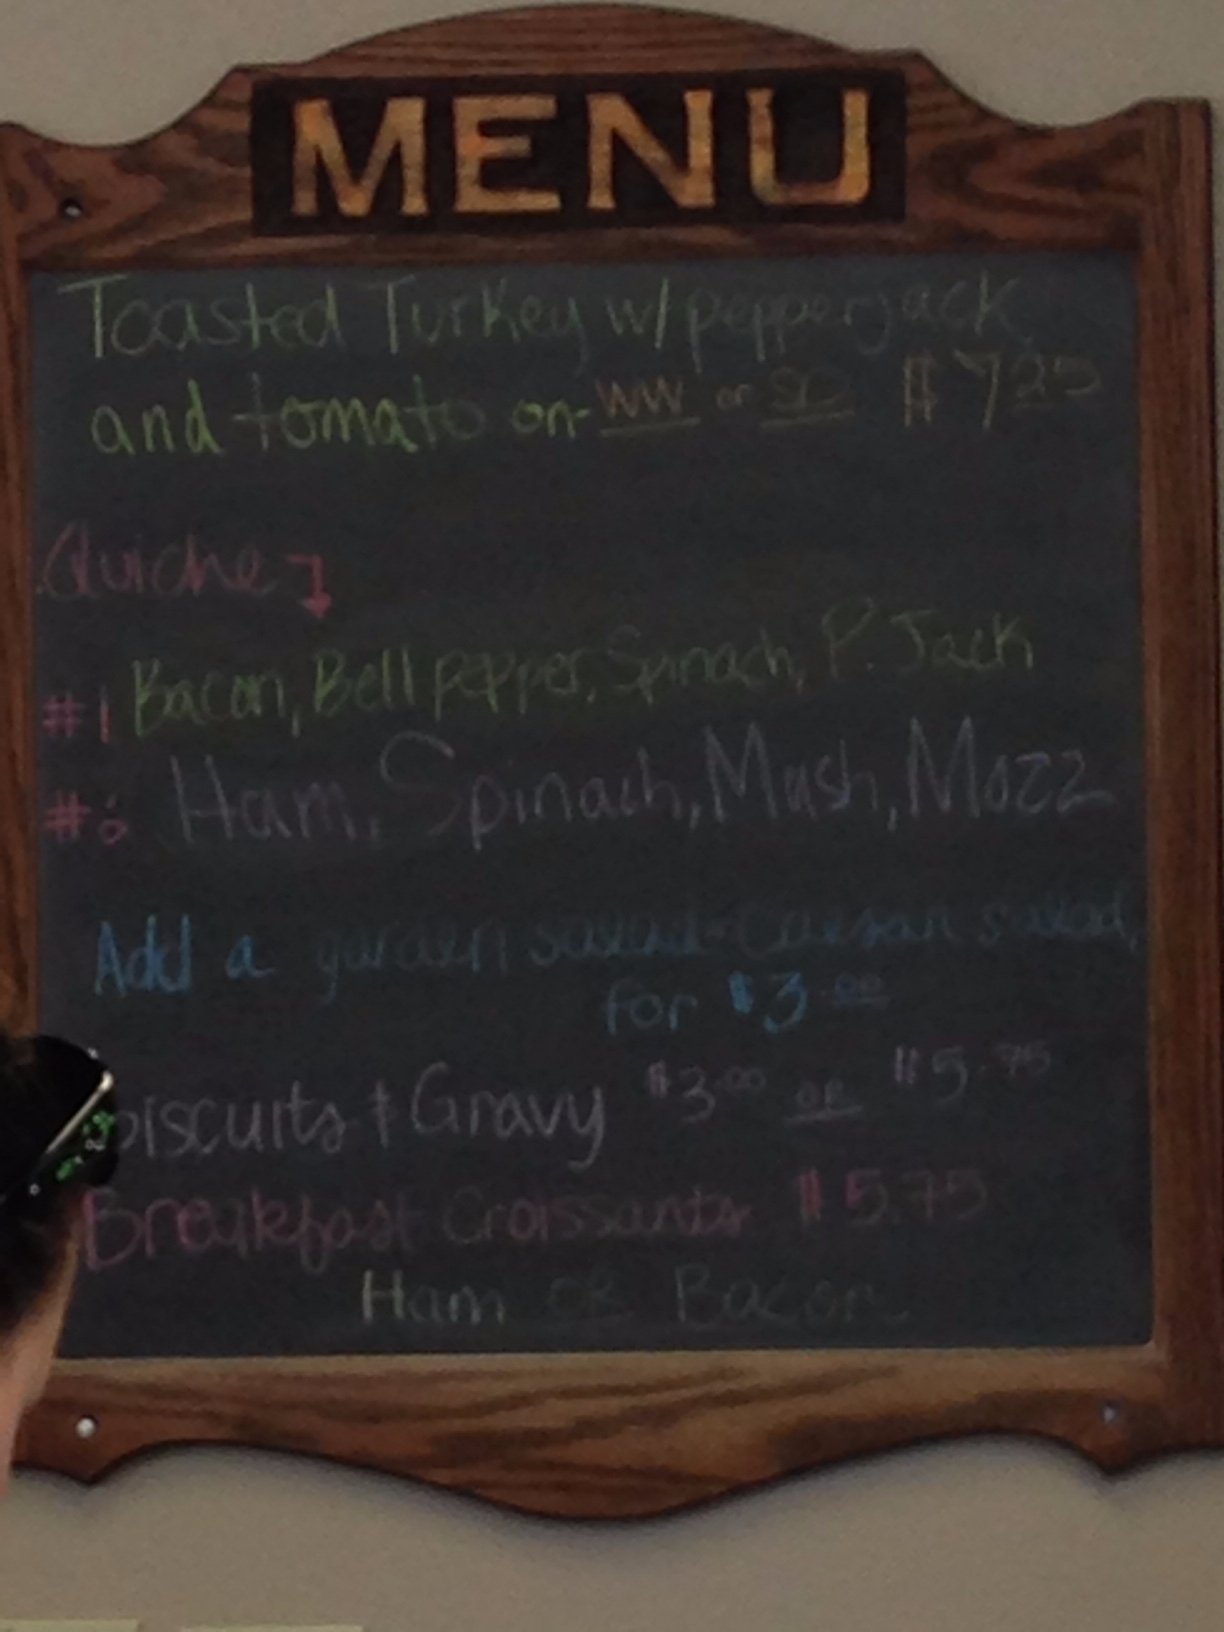 MENU
Toasted Turkey w/ pepperjack
and tomato on WW or SD $7.25
Quiche
#1 Bacon, Bell pepper, Spinach, P. Jack
# Ham, Spinach, Mush, Mozz
Add a garden salad - Caesar salad,
for $3.00
Biscuits & Gravy $3.00 or $5.75
Breakfast Croissants $5.75
Ham OR Bacon